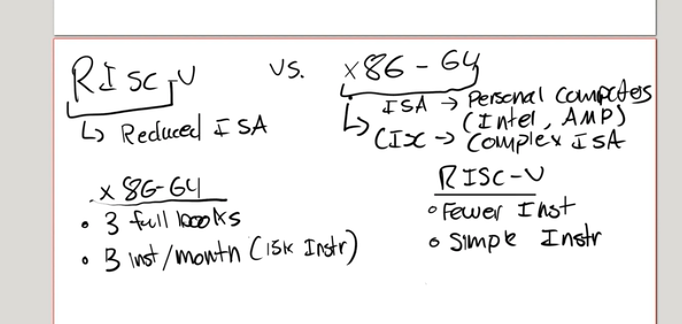 RISC-V vs. x86-64
↳ Reduced ISA
ISA → Personal Computers
(Intel, AMP)
↳ CIX → Complex ISA
x 86-64
• 3 full books
• 3 inst/month (15k Instr)
RISC-V
• Fewer Inst
• Simple Instr